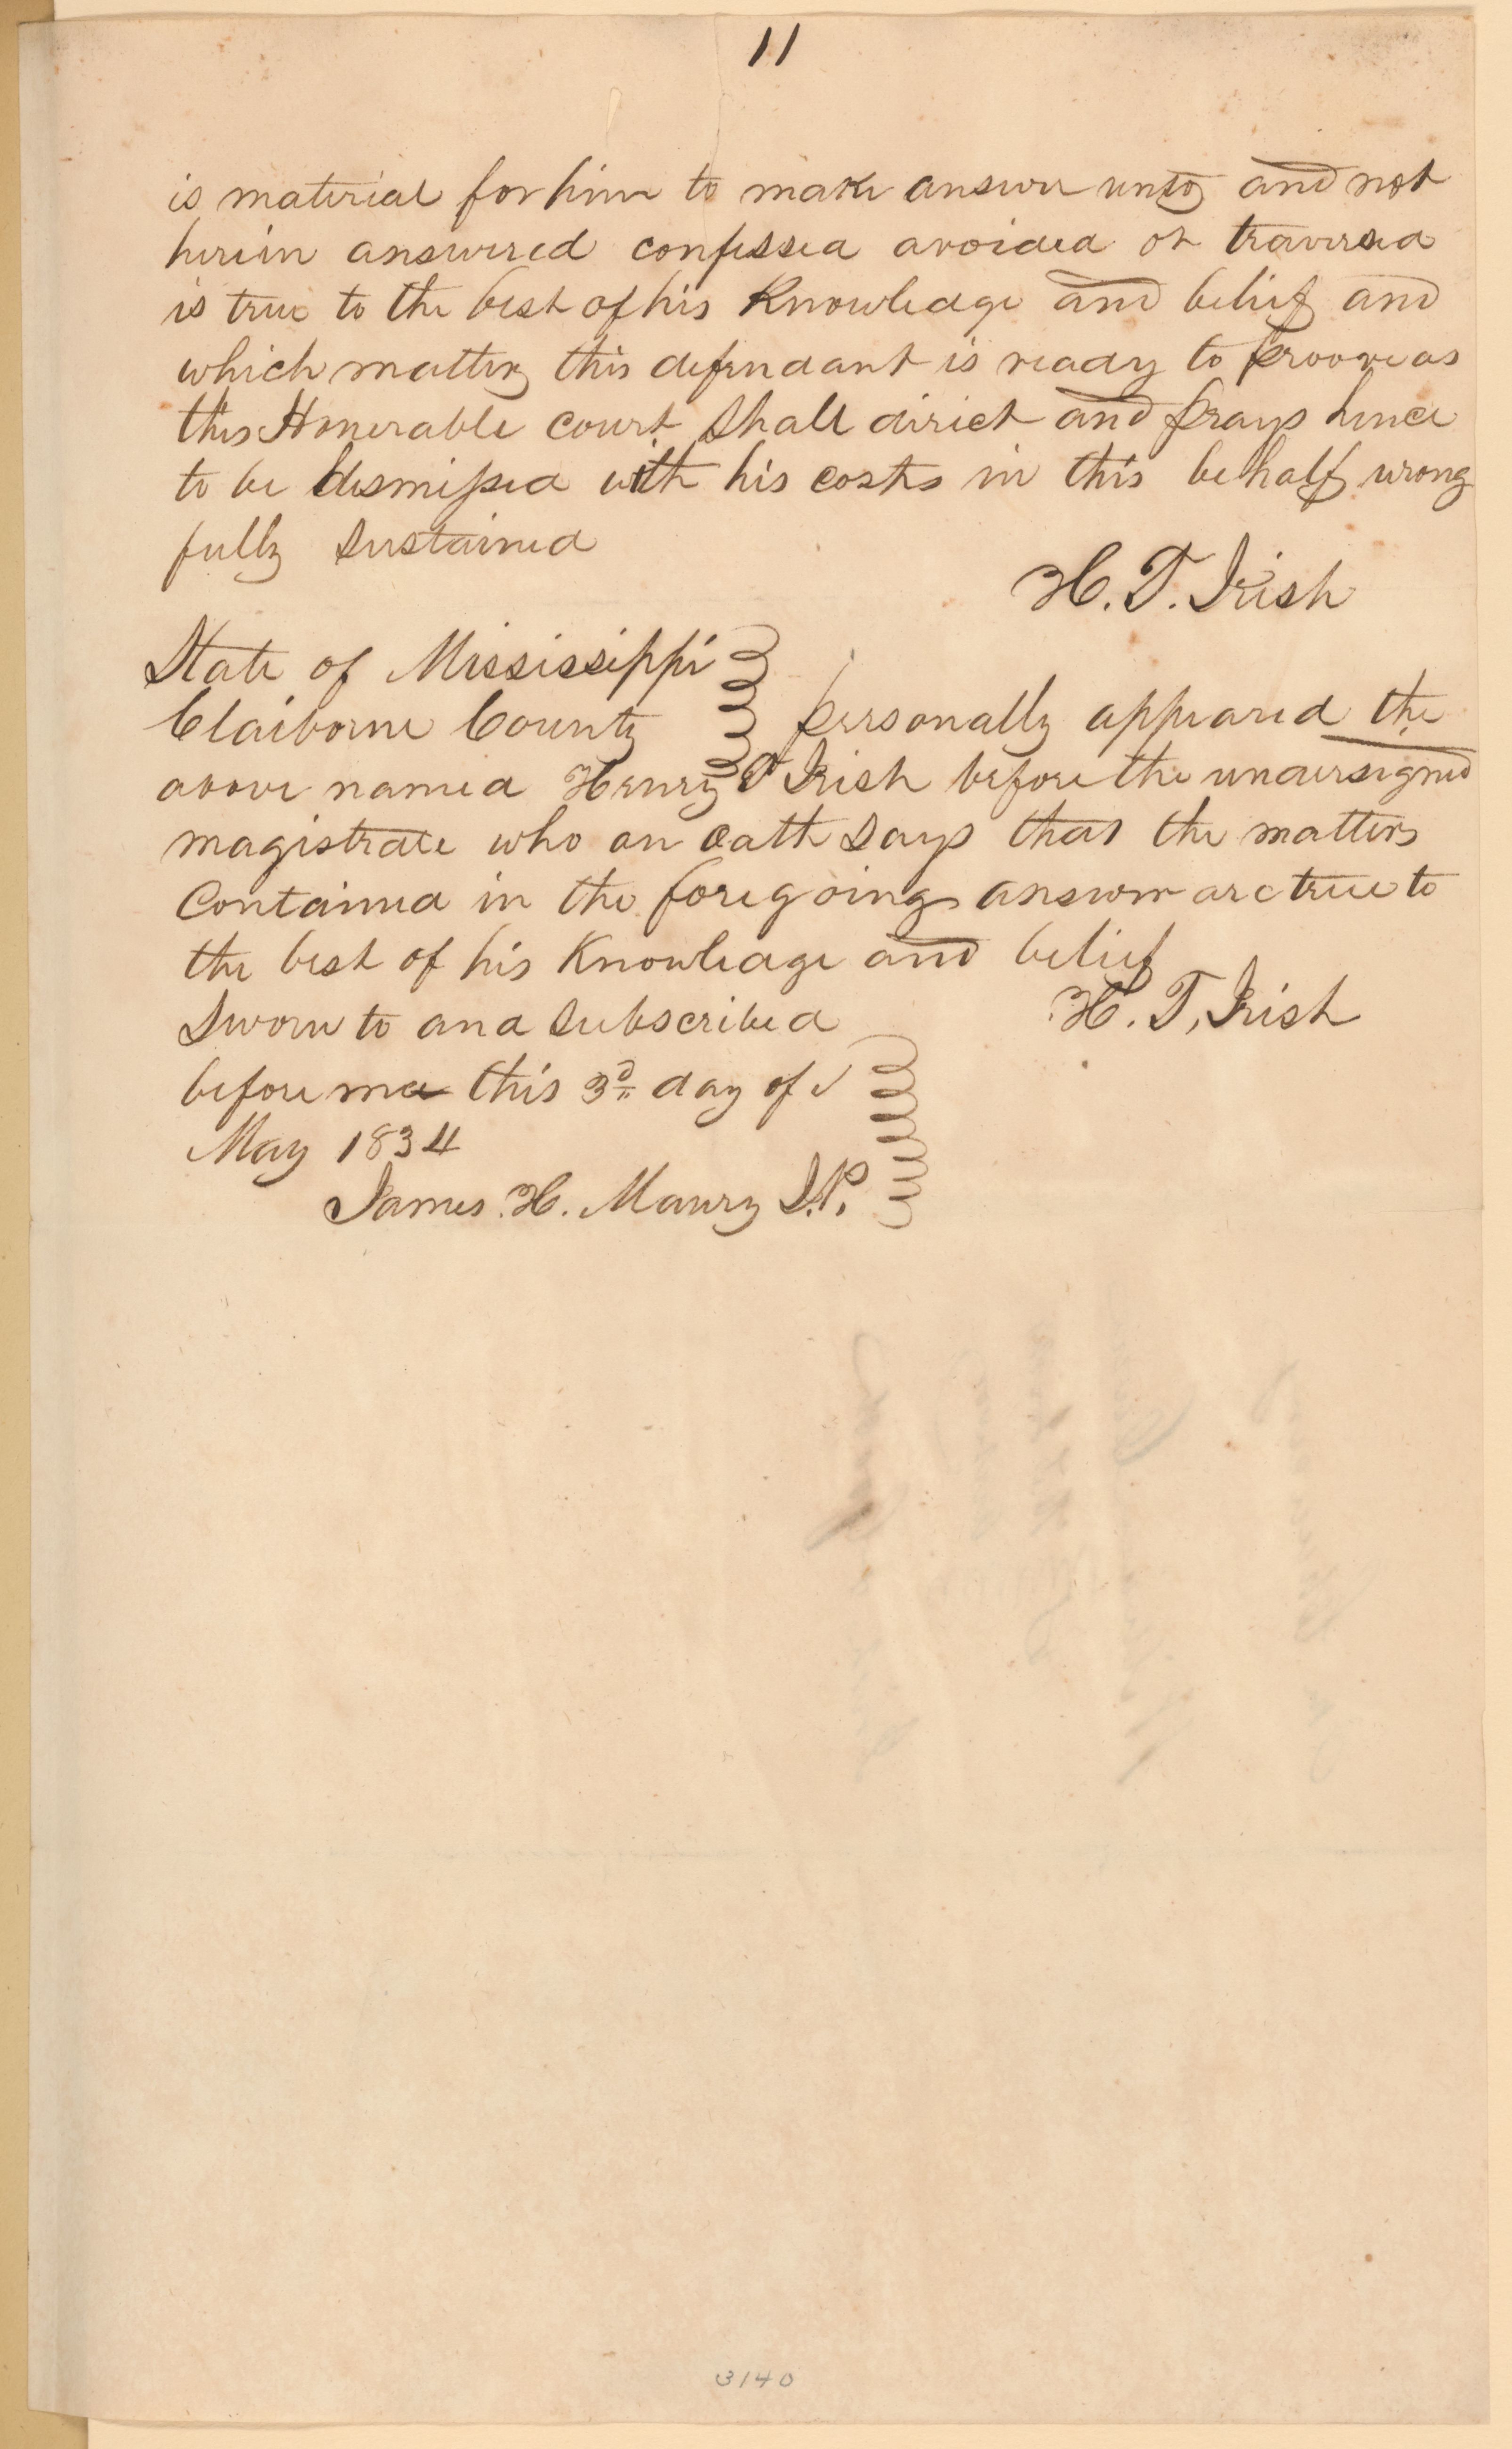 11
is material for him to make answer unto and not
herein answered confessed avoided or traversed
is true to the best of his Knowledge and belief and
which matters this defendant is ready to proove as
this Honerable court shall direct and prays hence
to be dismissed with his costs in this behalf wrong
fully sustained
H. T. Irish
State of Mississippi
Claiborne County personally appeared the
above named Henry T Irish before the undersigned
magistrate who on oath says that the matters
Contained in the foregoing answer are true to
the best of his Knowledge and belief
Sworn to and subscribed H. T. Irish
before me this 3d day of
May 1834
James H. Maury J.P.
3140